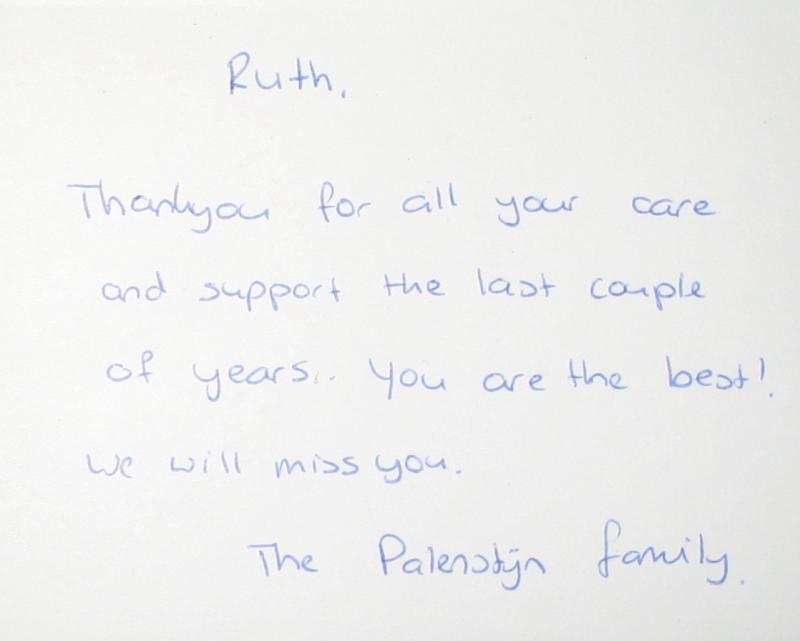 Ruth,
Thankyou for all your care
and support the last couple
of years... You are the best!
We will miss you.
The Palenstijn family.